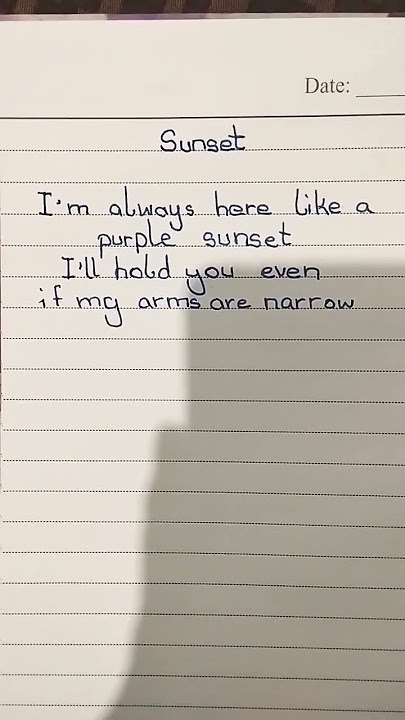 Date:
Sunset
I'm always here like a
purple sunset
I'll hold you even
if my arms are narrow